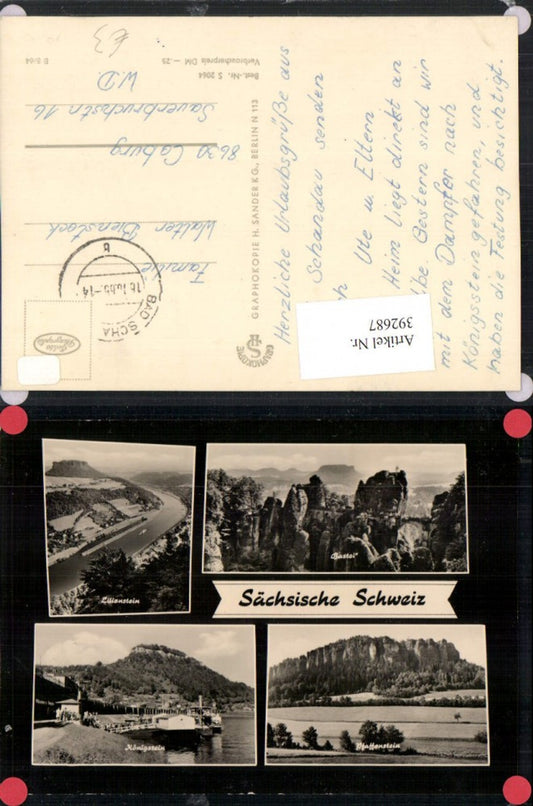 £3
Herzliche Urlaubsgrüße aus
Schandau senden
Ute u. Eltern
Heim liegt direkt an
Gestern sind wir
mit dem Dampfer nach
Königsstein gefahren, und
haben die Festung besichtigt.
GRAPHOKOPIE H. SANDER KG., BERLIN N 113
Best.-Nr. S 2064
Verbraucherpreis DM -.25
B 8/64
Familie
Walter Bienstock
8630 Coburg
Sauerbruchstr. 16
W.D.
BAD SCHA
16.10.65-14
b
Echte
Photographie
GRAPHOKOPIE
HS
Artikel Nr.
392687
Lilienstein
"Bastei"
Sächsische Schweiz
Königstein
Pfaffenstein